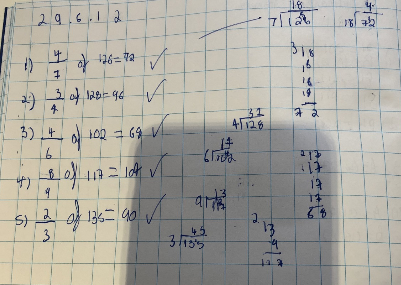 29.6.12
1) 4/7 of 126=72 ✓
2) 3/4 of 128=96 ✓
3) 4/6 of 102=68 ✓
4) 8/9 of 117=104 ✓
5) 2/3 of 135=90 ✓
18
7)126
4
18)72
3 18
18
18
18
72
32
4)128
17
6)102
2 17
17
17
17
68
13
9)117
45
3)135
2 13
9